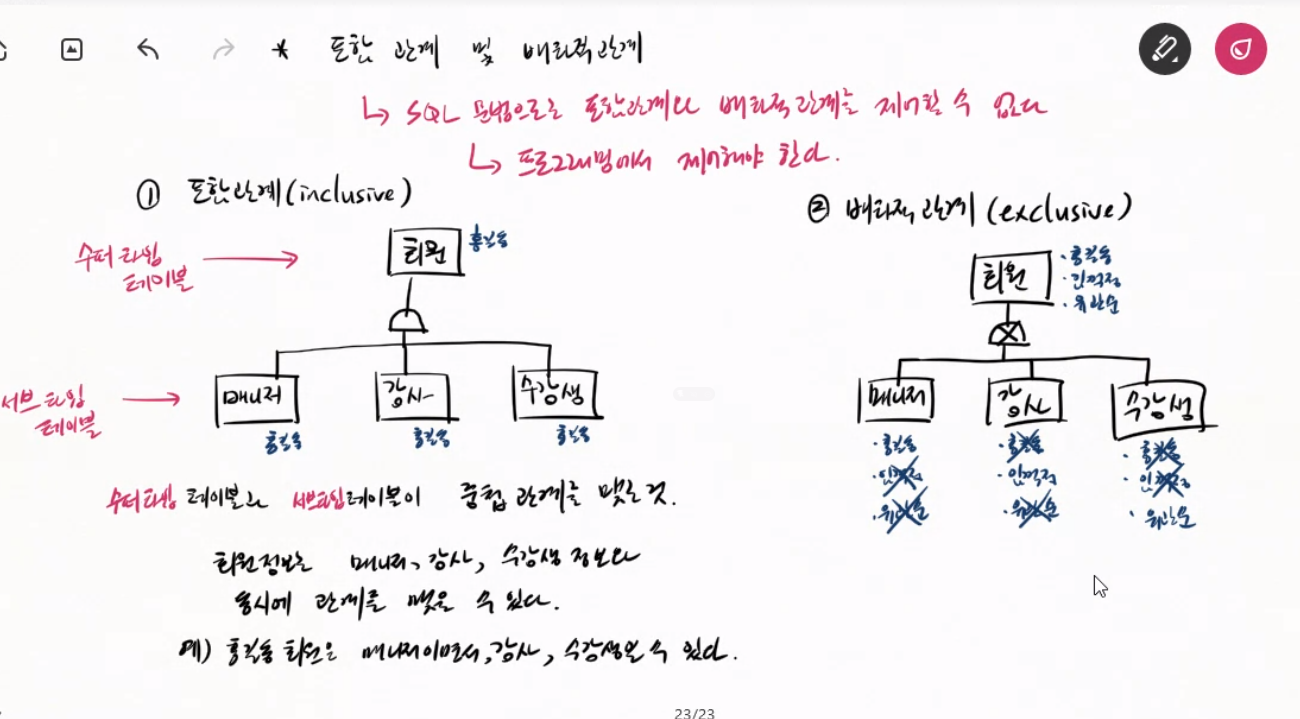 * 포함 관계 및 배타적 관계
↳ SQL 문법으로는 포함관계나 배타적 관계를 제어할 수 없다
↳ 프로그래밍에서 제어해야 한다.
① 포함관계(inclusive)
수퍼 타입 테이블
회원
홍길동
서브 타입 테이블
매니저
강사
수강생
홍길동
홍길동
홍길동
수퍼타입 테이블과 서브타입테이블이 중첩 관계를 맺는 것.
회원정보는 매니저, 강사, 수강생 정보와
동시에 관계를 맺을 수 있다.
예) 홍길동 회원은 매니저이면서, 강사, 수강생일 수 있다.
② 배타적 관계 (exclusive)
회원
· 홍길동
· 임꺽정
· 유관순
매니저
강사
수강생
· 홍길동
· 임꺽정
· 유관순
· 홍길동
· 임꺽정
· 유관순
· 홍길동
· 임꺽정
· 유관순
23/23